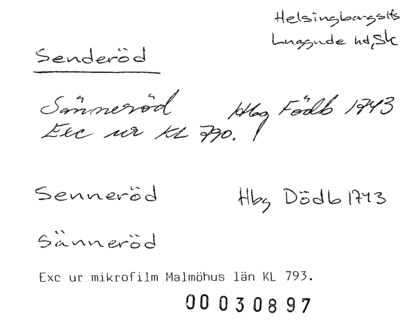 Helsingborgs lfs
Luggude hd, Sk
Senderöd
Sänneröd Hbg Födb 1743
Exc ur KL 790.
Senneröd Hbg Dödb 1743
Sänneröd
Exc ur mikrofilm Malmöhus län KL 793.
00030897